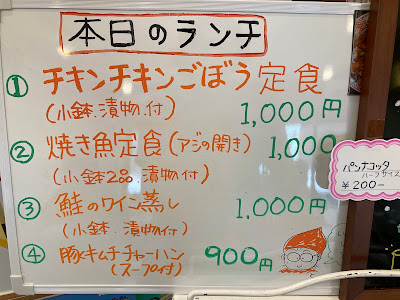 本日のランチ
① チキンチキンごぼう定食
(小鉢.漬物.付) 1,000円
② 焼き魚定食(アジの開き) 1,000
(小鉢2品.漬物.付)
③ 鮭のワイン蒸し
(小鉢.漬物付) 1,000円
④ 豚キムチチャーハン
(スープ付) 900円
パンナコッタ
ハーフサイズ
¥200-